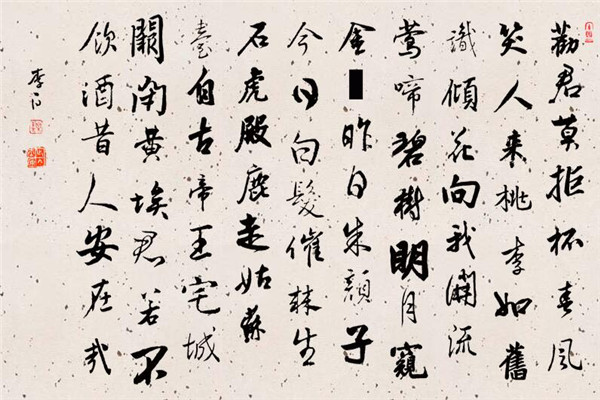 勸君莫拒杯春風
笑人来桃李如舊
識傾花向我開流
莺啼碧樹明月窺
金 昨日朱顏子
今日白髮催棘生
石虎殿鹿走姑蘇
臺自古帝王宅城
闕閉黃埃君若不
飲酒昔人安在哉
李白